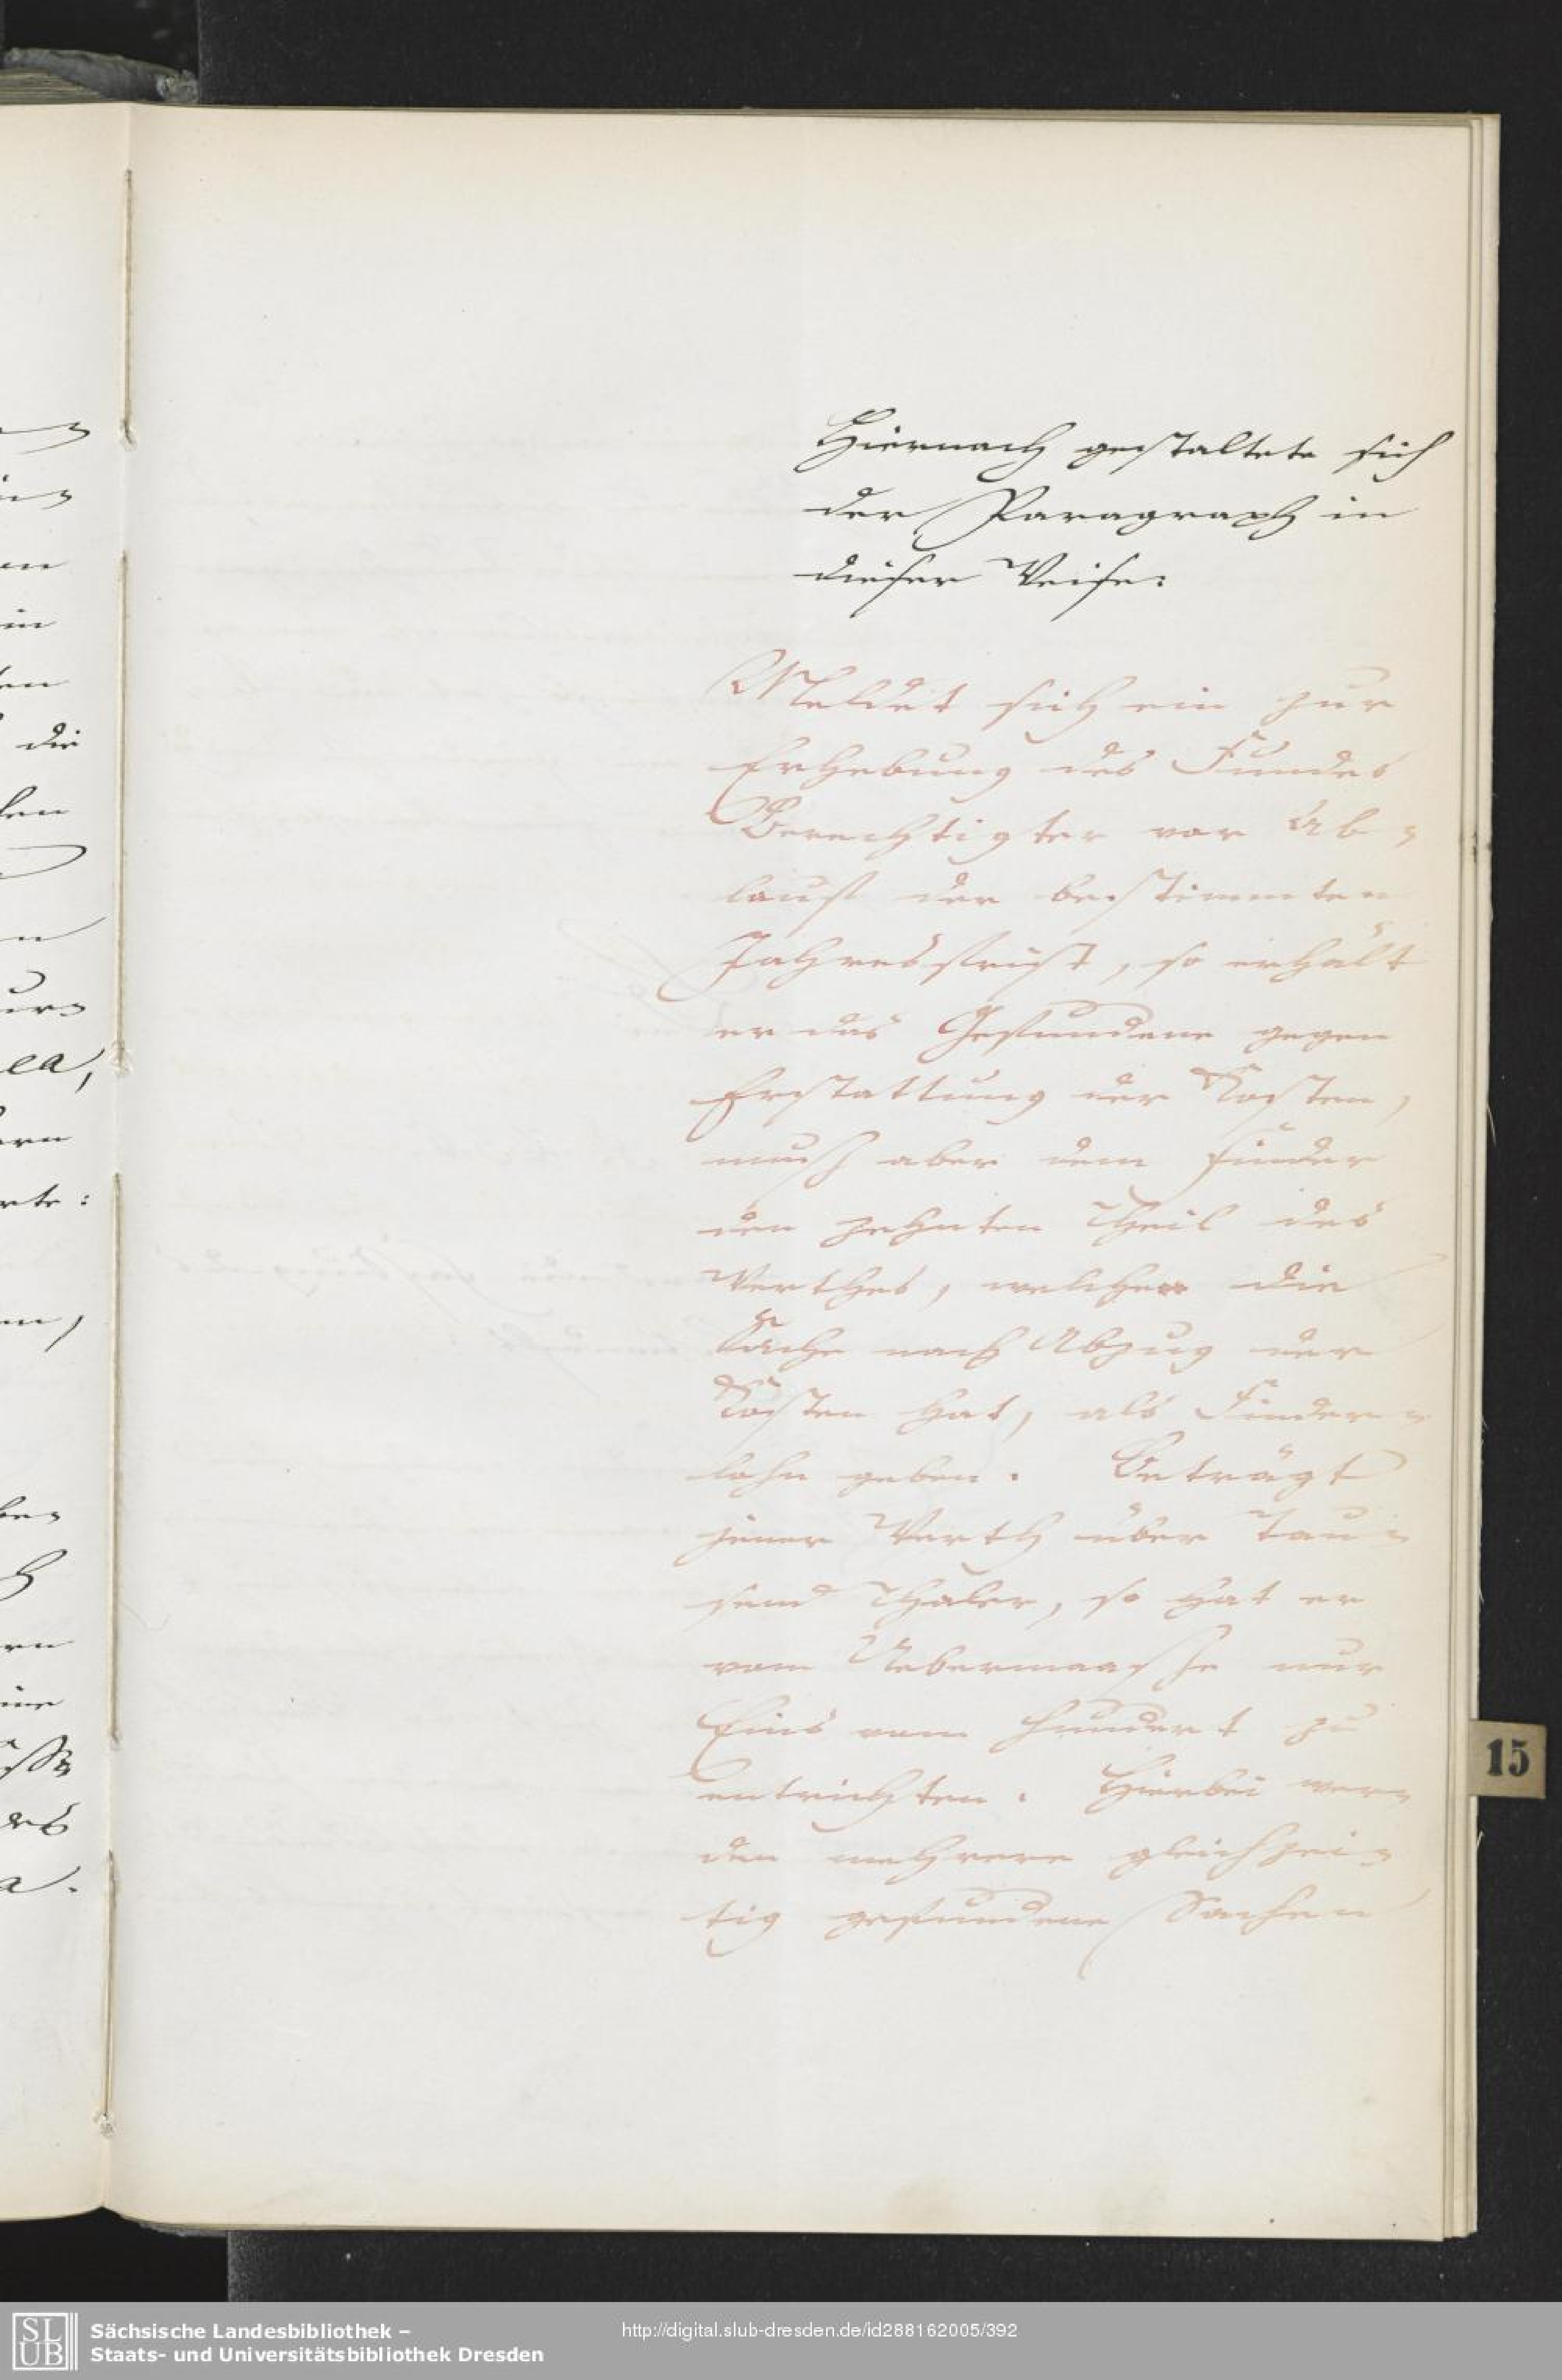 Hiernach gestaltete sich
der Paragraph in
dieser Weise:
Meldet sich ein zur
Erhebung des Fundes
Berechtigter vor Ab-
lauf der bestimmten
Jahresfrist, so erhält
er das Gefundene gegen
Erstattung der Kosten,
muß aber dem Finder
den zehnten Theil des
Werthes, welchen die
Sache nach Abzug der
Kosten hat, als Finder-
lohn geben. Beträgt
jener Werth über Tau-
send Thaler, so hat er
vom Uebermaaße nur
Eins vom Hundert zu
entrichten. Hierbei wer-
den mehrere gleichzei-
tig gefundene Sachen
die
in
15
SLUB
Sächsische Landesbibliothek –
Staats- und Universitätsbibliothek Dresden
http://digital.slub-dresden.de/id288162005/392